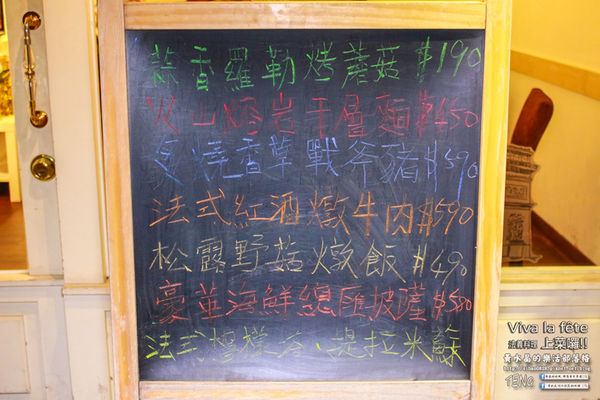 蒜香羅勒烤蘑菇 $190
火山熔岩千層麵 $450
炙燒香草戰斧豬 $590
法式紅酒燉牛肉 $590
松露野菇燉飯 $490
豪華海鮮總匯披薩 $580
法式檸檬 、提拉米蘇
Viva la fête
法義料理 上菜囉!!
黃水晶的樂活部落格
TENO